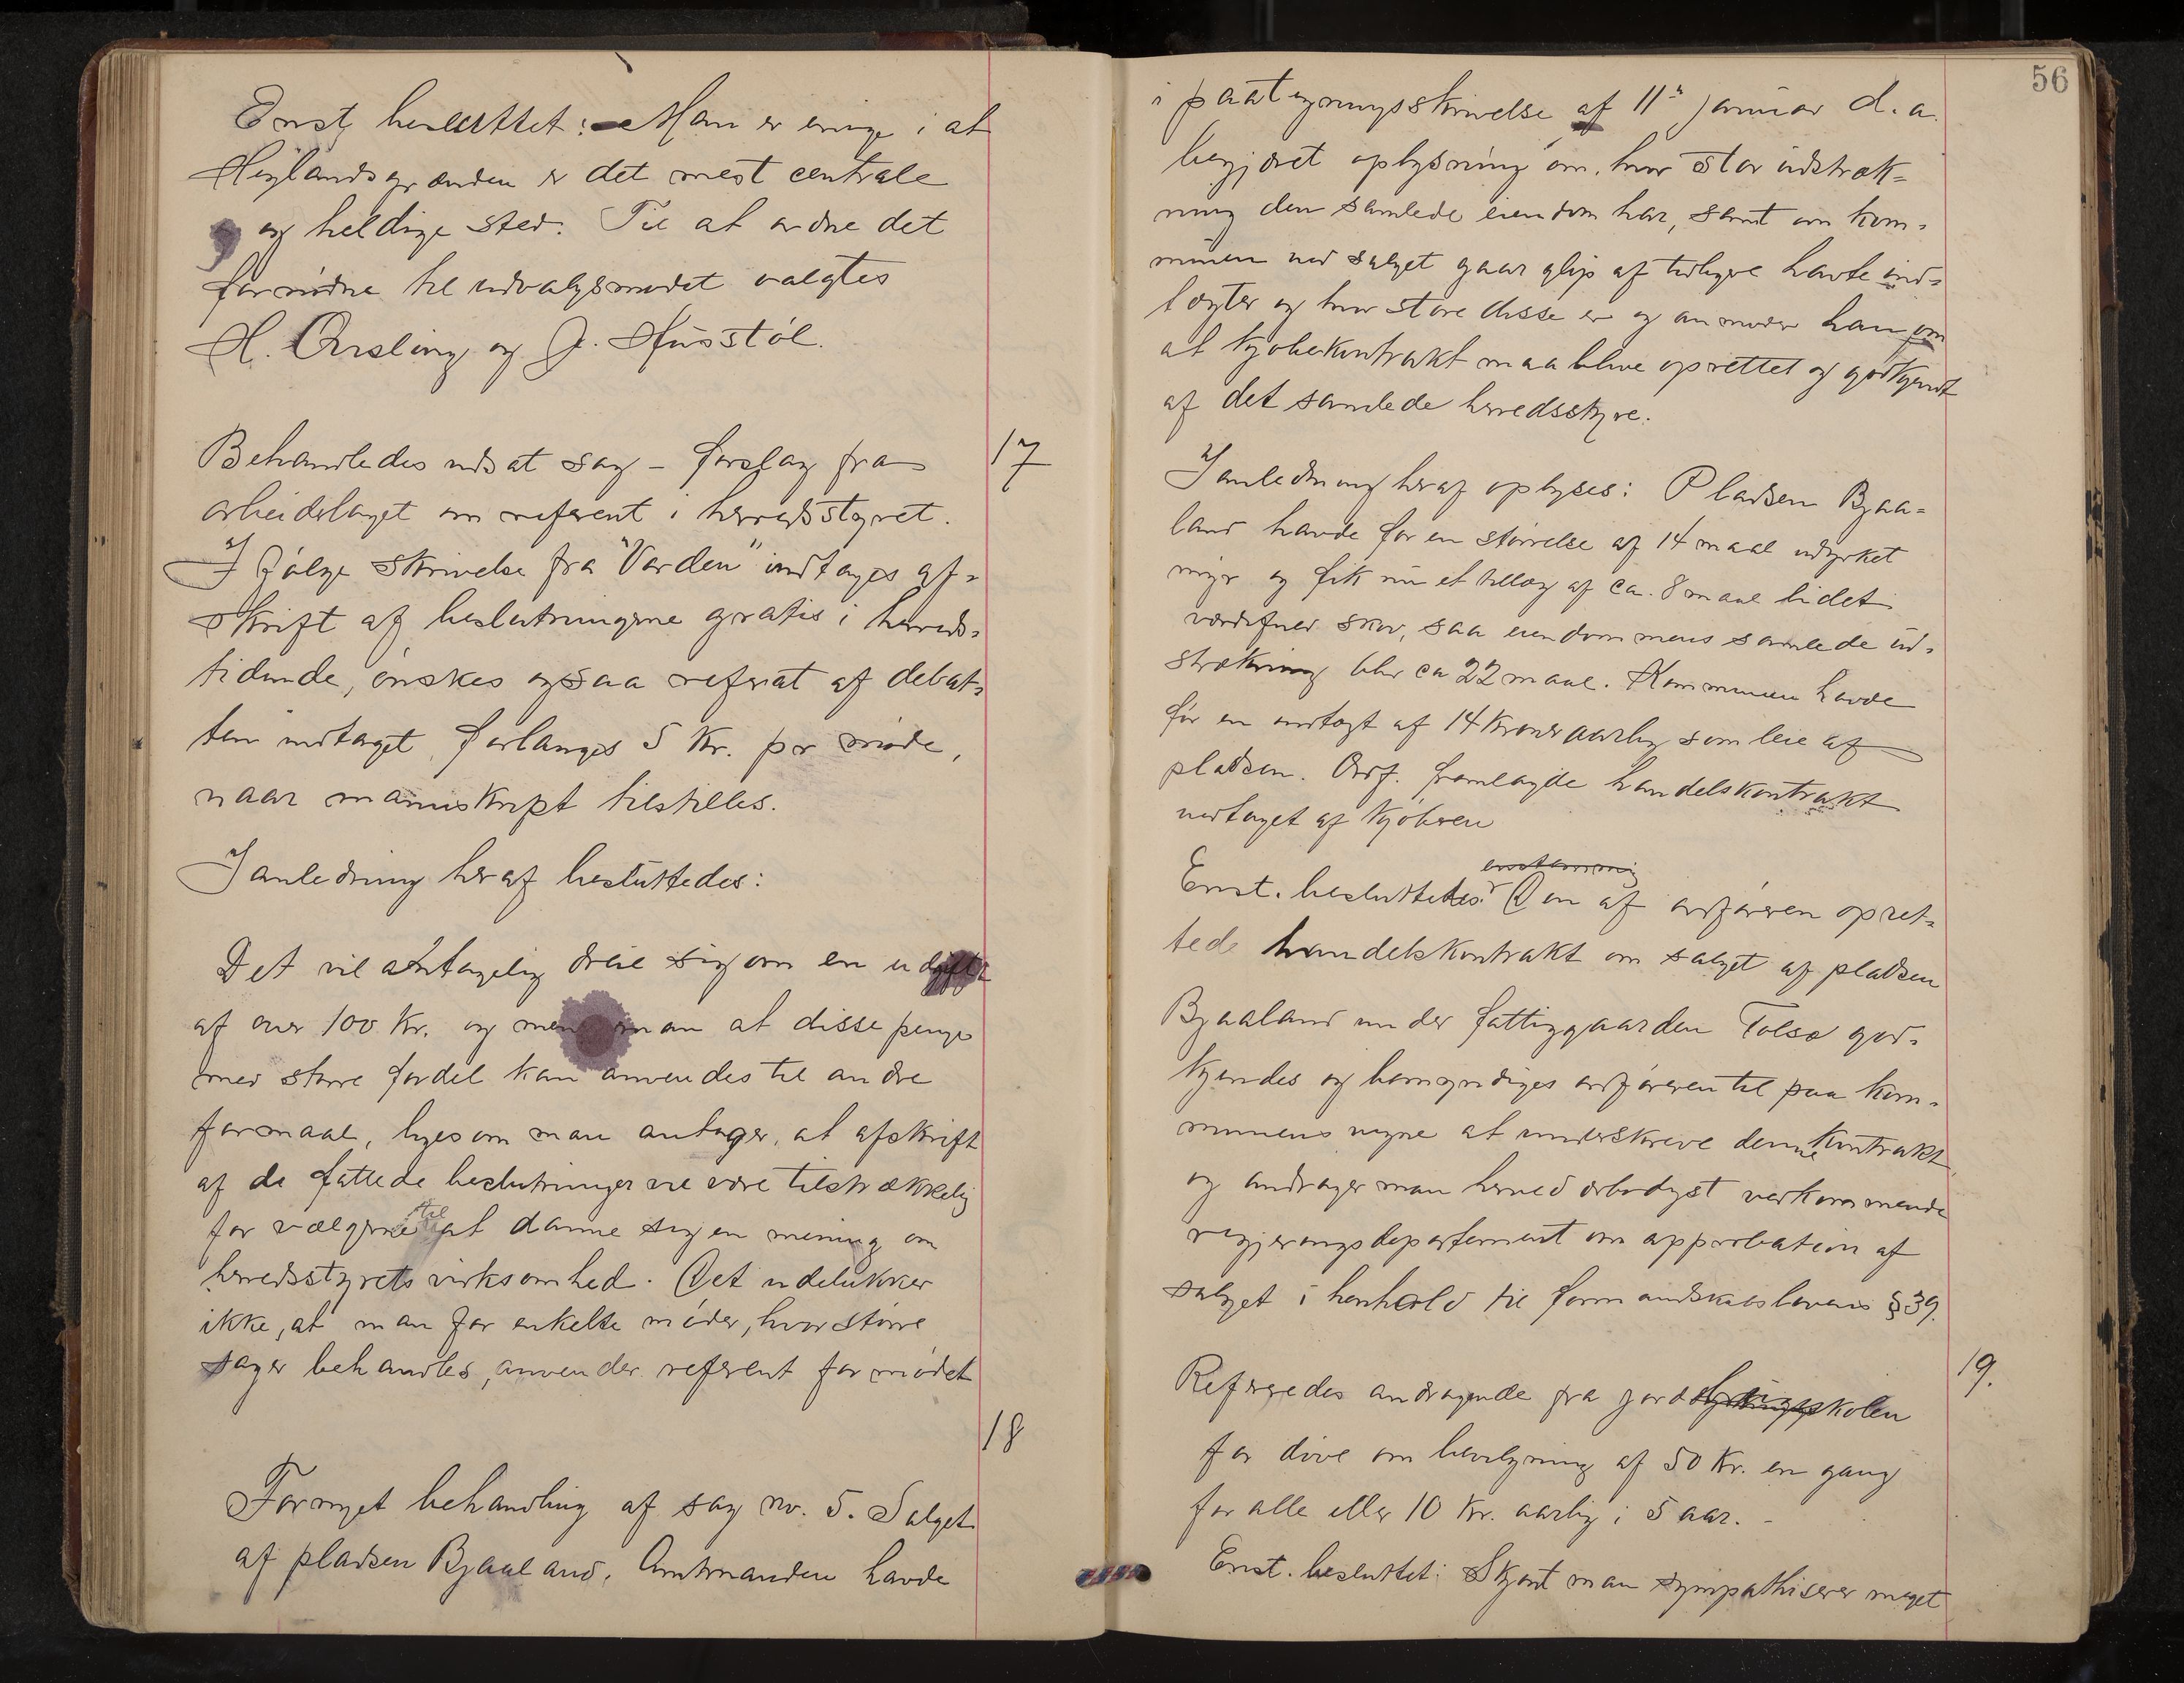 Enst. besluttet: Man er enige i at
Heglandsgrænden er det mest centrale
og heldige sted. Til at ordne det
fornødne til udvalgsmødet valgtes
H. Aasling og J. Husstøl.
17
Behandledes udsat sag – forslag fra
arbeiderlaget om referent i herredsstyret.
I følge skrivelse fra "Varden" indtages af-
skrift af beslutningerne gratis i herreds-
tidende, ønskes ogsaa referat af debat-
ten indtaget, forlanges 5 Kr. pr møde,
naar manuskript tilstilles.
I anledning heraf besluttedes:
Det vil antagelig dreie sig om en udgift
af over 100 Kr. og mener man at disse penge
med større fordel kan anvendes til andre
formaal, ligesom man antager, at afskrift
af de fattede beslutninger vil være tilstrækkelig
for vælgerne til at danne sig en mening om
herredsstyrets virksomhed. Det udelukker
ikke, at man for enkelte møder, hvor større
sager behandles, anvender referent for mødet
18
Fornyet behandling af sag no. 5. Salget
af pladsen Bjaaland. Amtmanden havde
56
i paategningsskrivelse af 11te januar d. a.
begjæret oplysning om, hvor stor udstræk-
ning den samlede eiendom har, samt om kom-
munen ved salget gaar glip af tidligere havte ind-
tægter og hvor store disse er og anmoder han om
at kjøbekontrakt maa blive oprettet og godkjendt
af det samlede herredsstyre.
I anledning heraf oplyses: Pladsen Bjaa-
land havde før en størrelse af 14 maal udyrket
myr og fik nu et tillæg af ca. 8 maal lidet
værdifuld skov, saa eiendommens samlede ud-
strækning blir ca 22 maal. Kommunen havde
før en indtægt af 14 kroner aarlig som leie af
pladsen. Ordf. fremlagde handelskontrakt
vedtaget af kjøberen
enstemmig
Enst. besluttedes: Den af ordføreren opret-
tede handelskontrakt om salget af pladsen
Bjaaland under fattiggaarden Folsæ god-
kjendes og bemyndiges ordføreren til paa kom-
munens vegne at underskrive denne kontrakt,
og andrager man herved ærbødigst vedkommende
regjeringsdepartement om approbation af
salget i henhold til formandskabslovens § 39.
19.
Refereredes andragende fra skolen
for døve om bevilgning af 50 Kr. en gang
for alle eller 10 Kr. aarlig i 5 aar. –
Enst. besluttet: Skjønt man sympathiserer meget